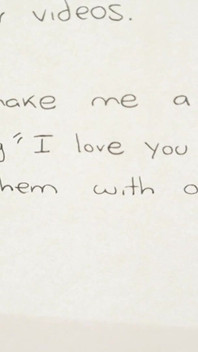 videos.
make me a
" I love you
them with